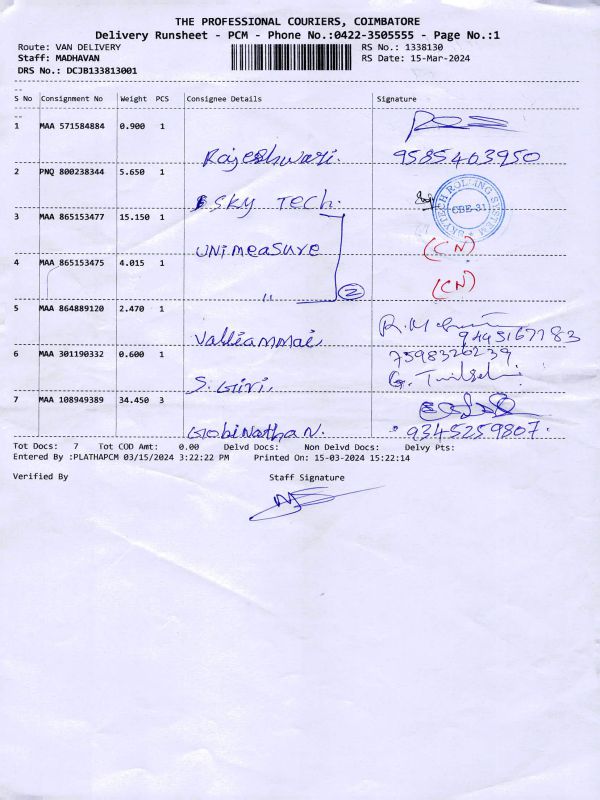 THE PROFESSIONAL COURIERS, COIMBATORE
Delivery Runsheet - PCM - Phone No.:0422-3505555 - Page No.:1
Route: VAN DELIVERY RS No.: 1338130
Staff: MADHAVAN RS Date: 15-Mar-2024
DRS No.: DCJB133813001
S No Consignment No Weight PCS Consignee Details Signature
1 MAA 571584884 0.900 1
Rajeshwari. 9585403950
2 PNQ 800238344 5.650 1
SKY Tech. SKYTECH ROLLING SYSTEM CBE-31
3 MAA 865153477 15.150 1
unimeasure (CN)
4 MAA 865153475 4.015 1
" (2) (CN)
5 MAA 864889120 2.470 1
Valliammai 9445167783
6 MAA 301190332 0.600 1 7598320239
S. Giri. G.
7 MAA 108949389 34.450 3
GobiNathaN. 9345259807.
Tot Docs: 7 Tot COD Amt: 0.00 Delvd Docs: Non Delvd Docs: Delvy Pts:
Entered By :PLATHAPCM 03/15/2024 3:22:22 PM Printed On: 15-03-2024 15:22:14
Verified By Staff Signature